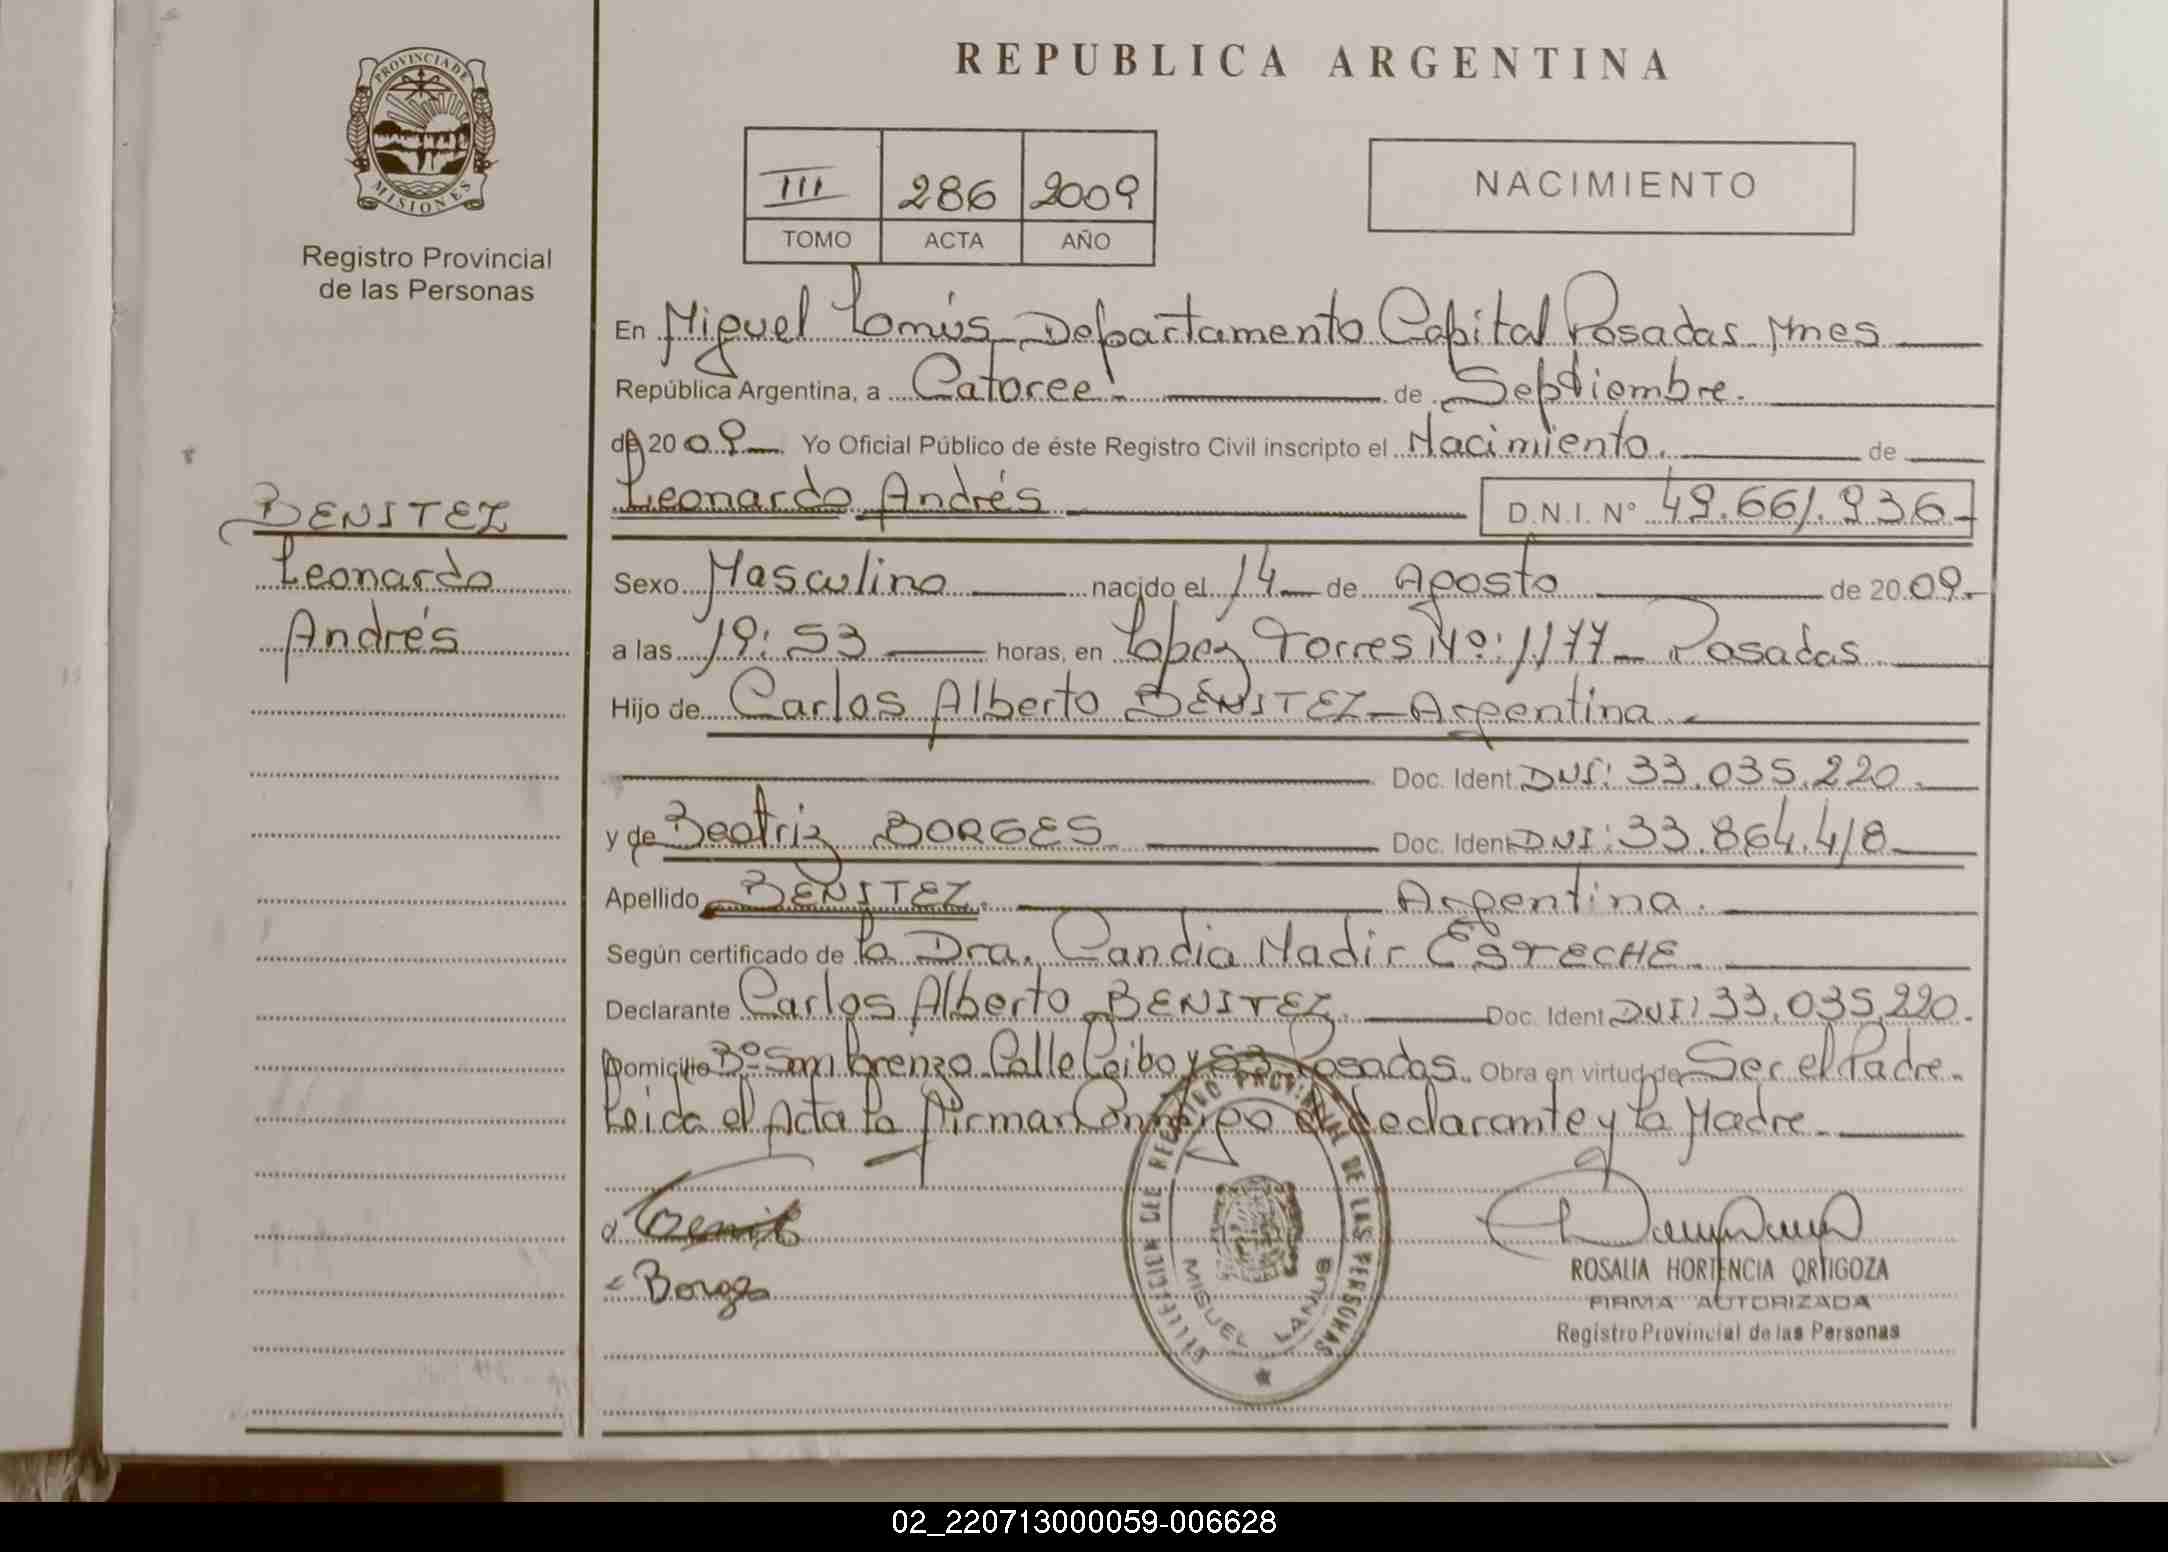 PROVINCIA DE
MISIONES
Registro Provincial
de las Personas
BENITEZ
Leonardo
Andrés
REPUBLICA ARGENTINA
III 286 2009
TOMO ACTA AÑO
NACIMIENTO
En Miguel Lanús Departamento Capital Posadas Mnes
República Argentina, a Catorce de Septiembre.
de 2009 Yo Oficial Público de éste Registro Civil inscripto el Nacimiento. de
Leonardo Andrés D.N.I. N° 49.661.936
Sexo Masculino nacido el 14 de Agosto de 2009.
a las 19:53 horas, en López Torres Nº: 1177 - Posadas
Hijo de Carlos Alberto BENITEZ - Argentina
Doc. Ident. DNI: 33.035.220.
y de Beatriz BORGES Doc. Ident. DNI: 33.864.418
Apellido BENITEZ. Argentina.
Según certificado de la Dra. Candia Nadir ESTECHE.
Declarante Carlos Alberto BENITEZ. Doc. Ident. DNI: 33.035.220.
Domicilio Bº San Lorenzo Calle Ceibo y 53 Posadas. Obra en virtud de Ser el Padre.
Leida el Acta la firman Conmigo el declarante y la Madre.
Benit
Borges
DELEGACION DEL REGISTRO PROVINCIAL DE LAS PERSONAS
MIGUEL LANUS
ROSALIA HORTENCIA ORTIGOZA
FIRMA AUTORIZADA
Registro Provincial de las Personas
02_220713000059-006628